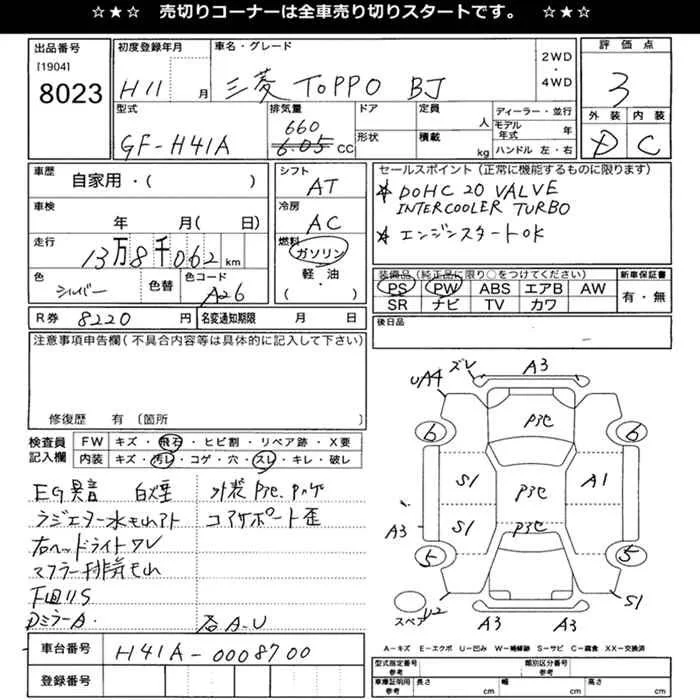 ☆★☆ 売切りコーナーは全車売り切りスタートです。 ☆★☆
出品番号
[1904]
8023
初度登録年月
H11 月
車名・グレード
三菱 TOPPO BJ
2WD
・
4WD
評価点
3
外装 内装
D C
型式
GF-H41A
排気量
660
6.05 CC
ドア
形状
定員 人
積載 kg
ディーラー・並行
モデル年式 年
ハンドル 左・右
車歴
自家用・( )
シフト
AT
車検
年 月( 日)
冷房
AC
走行
13万8千062 km
燃料
ガソリン
軽・油
・( )
色
シルバー
色替
色コード
A26
セールスポイント(正常に機能するものに限ります)
★ DOHC 20 VALVE
INTERCOOLER TURBO
★ エンジンスタートOK
装備品(純正品に限り○をつけてください)
PS PW ABS エアB AW
SR ナビ TV カワ
新車保証書
有・無
R券 8220 円
名変通知期限 月 日
後日品
注意事項申告欄(不具合内容等は具体的に記入して下さい)
修復歴 有 〔箇所 〕
検査員記入欄
FW キズ・飛石・ヒビ割・リペア跡・X要
内装 キズ・汚レ・コゲ・穴・スレ・キレ・破レ
EG異音 白煙 外装P3C、
ラジエター水もれアト コアサポート歪
右ヘッドライトワレ
マフラー排気もれ
下回りS
DミラーA. 石A-U
車台番号
H41A-0008700
登録番号
UA4 ズレ A3
6 P3C 6
S1 P3C A1
S1 P3C
A3
5 5
スペア U2 A3 A3 S1
A-キズ E-エクボ U-凹み W-補修跡 S-サビ C-腐食 XX-交換済
型式指定番号
参考
類別区分番号
参考
車庫証明用
参考
長さ cm
幅 cm
高さ cm